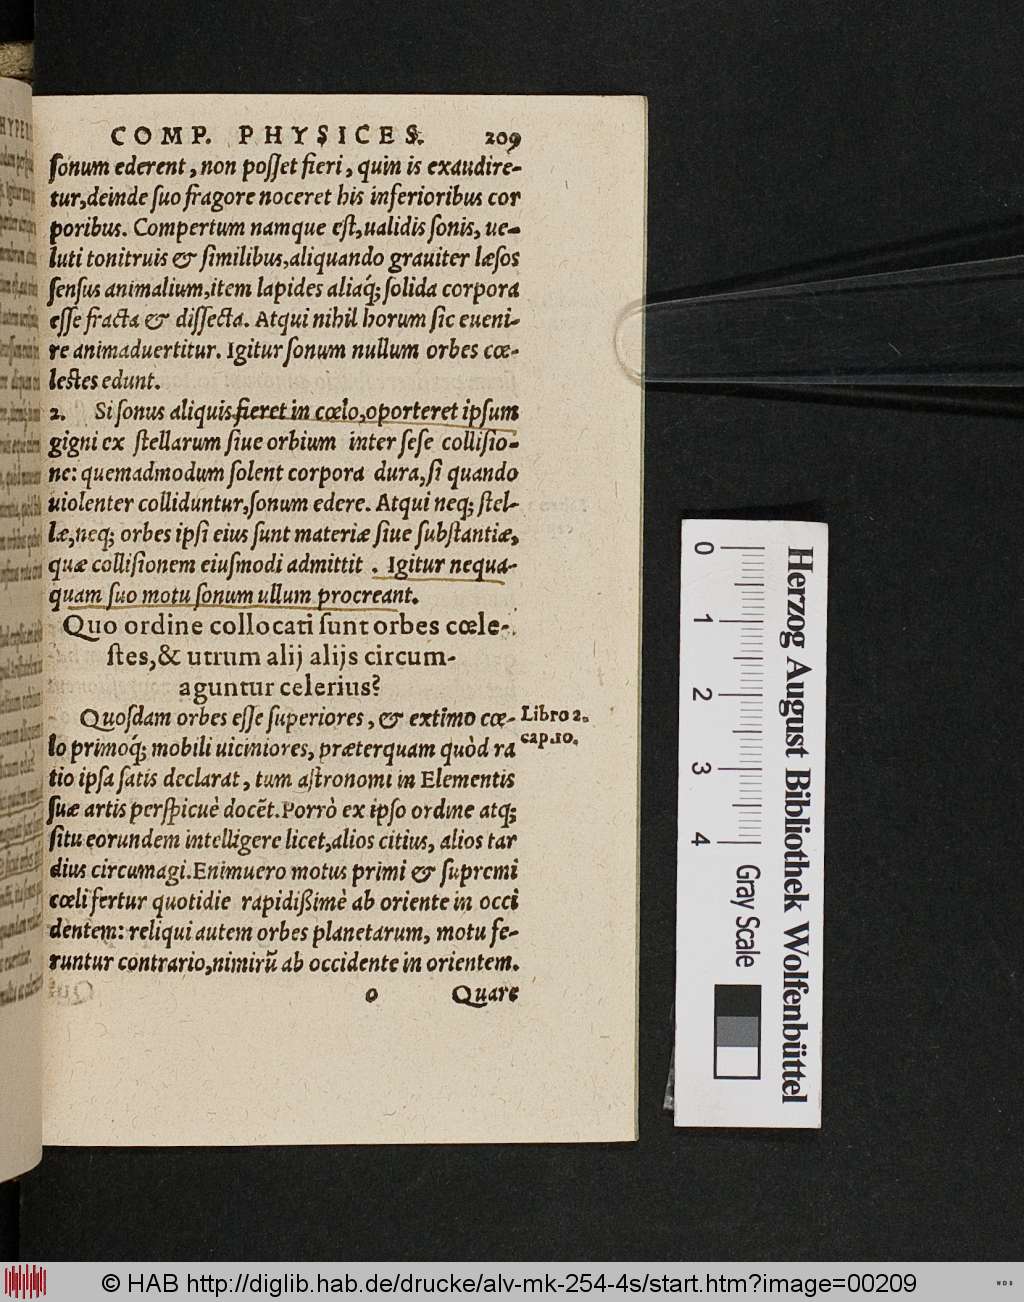 COMP. PHYSICES. 209
ſonum ederent, non poſſet fieri, quin is exaudire-
tur, deinde ſuo fragore noceret his inferioribus cor
poribus. Compertum namque eſt, ualidis ſonis, ue-
luti tonitruis & ſimilibus, aliquando grauiter læſos
ſenſus animalium, item lapides aliaq́; ſolida corpora
eſſe fracta & diſſecta. Atqui nihil horum ſic eueni-
re animaduertitur. Igitur ſonum nullum orbes cœ-
leſtes edunt.
2. Si ſonus aliquis fieret in cœlo, oporteret ipſum
gigni ex ſtellarum ſiue orbium inter ſeſe colliſio-
ne: quemadmodum ſolent corpora dura, ſi quando
uiolenter colliduntur, ſonum edere. Atqui neq; ſtel-
læ, neq; orbes ipſi eius ſunt materiæ ſiue ſubſtantiæ,
quæ colliſionem eiuſmodi admittit. Igitur nequa-
quam ſuo motu ſonum ullum procreant.
Quo ordine collocati ſunt orbes cœle-
ſtes, & utrum alij alijs circum-
aguntur celerius?
Quoſdam orbes eſſe ſuperiores, & extimo cœ-
lo primoq́; mobili uiciniores, præterquam quòd ra
tio ipſa ſatis declarat, tum aſtronomi in Elementis
ſuæ artis perſpicuè docẽt. Porrò ex ipſo ordine atq;
ſitu eorundem intelligere licet, alios citius, alios tar
dius circumagi. Enimuero motus primi & ſupremi
cœli fertur quotidie rapidißimè ab oriente in occi
dentem: reliqui autem orbes planetarum, motu fe-
runtur contrario, nimirũ ab occidente in orientem.
o Quare
Libro 2.
cap. 10.
0 1 2 3 4
Gray Scale
Herzog August Bibliothek Wolfenbüttel
© HAB http://diglib.hab.de/drucke/alv-mk-254-4s/start.htm?image=00209